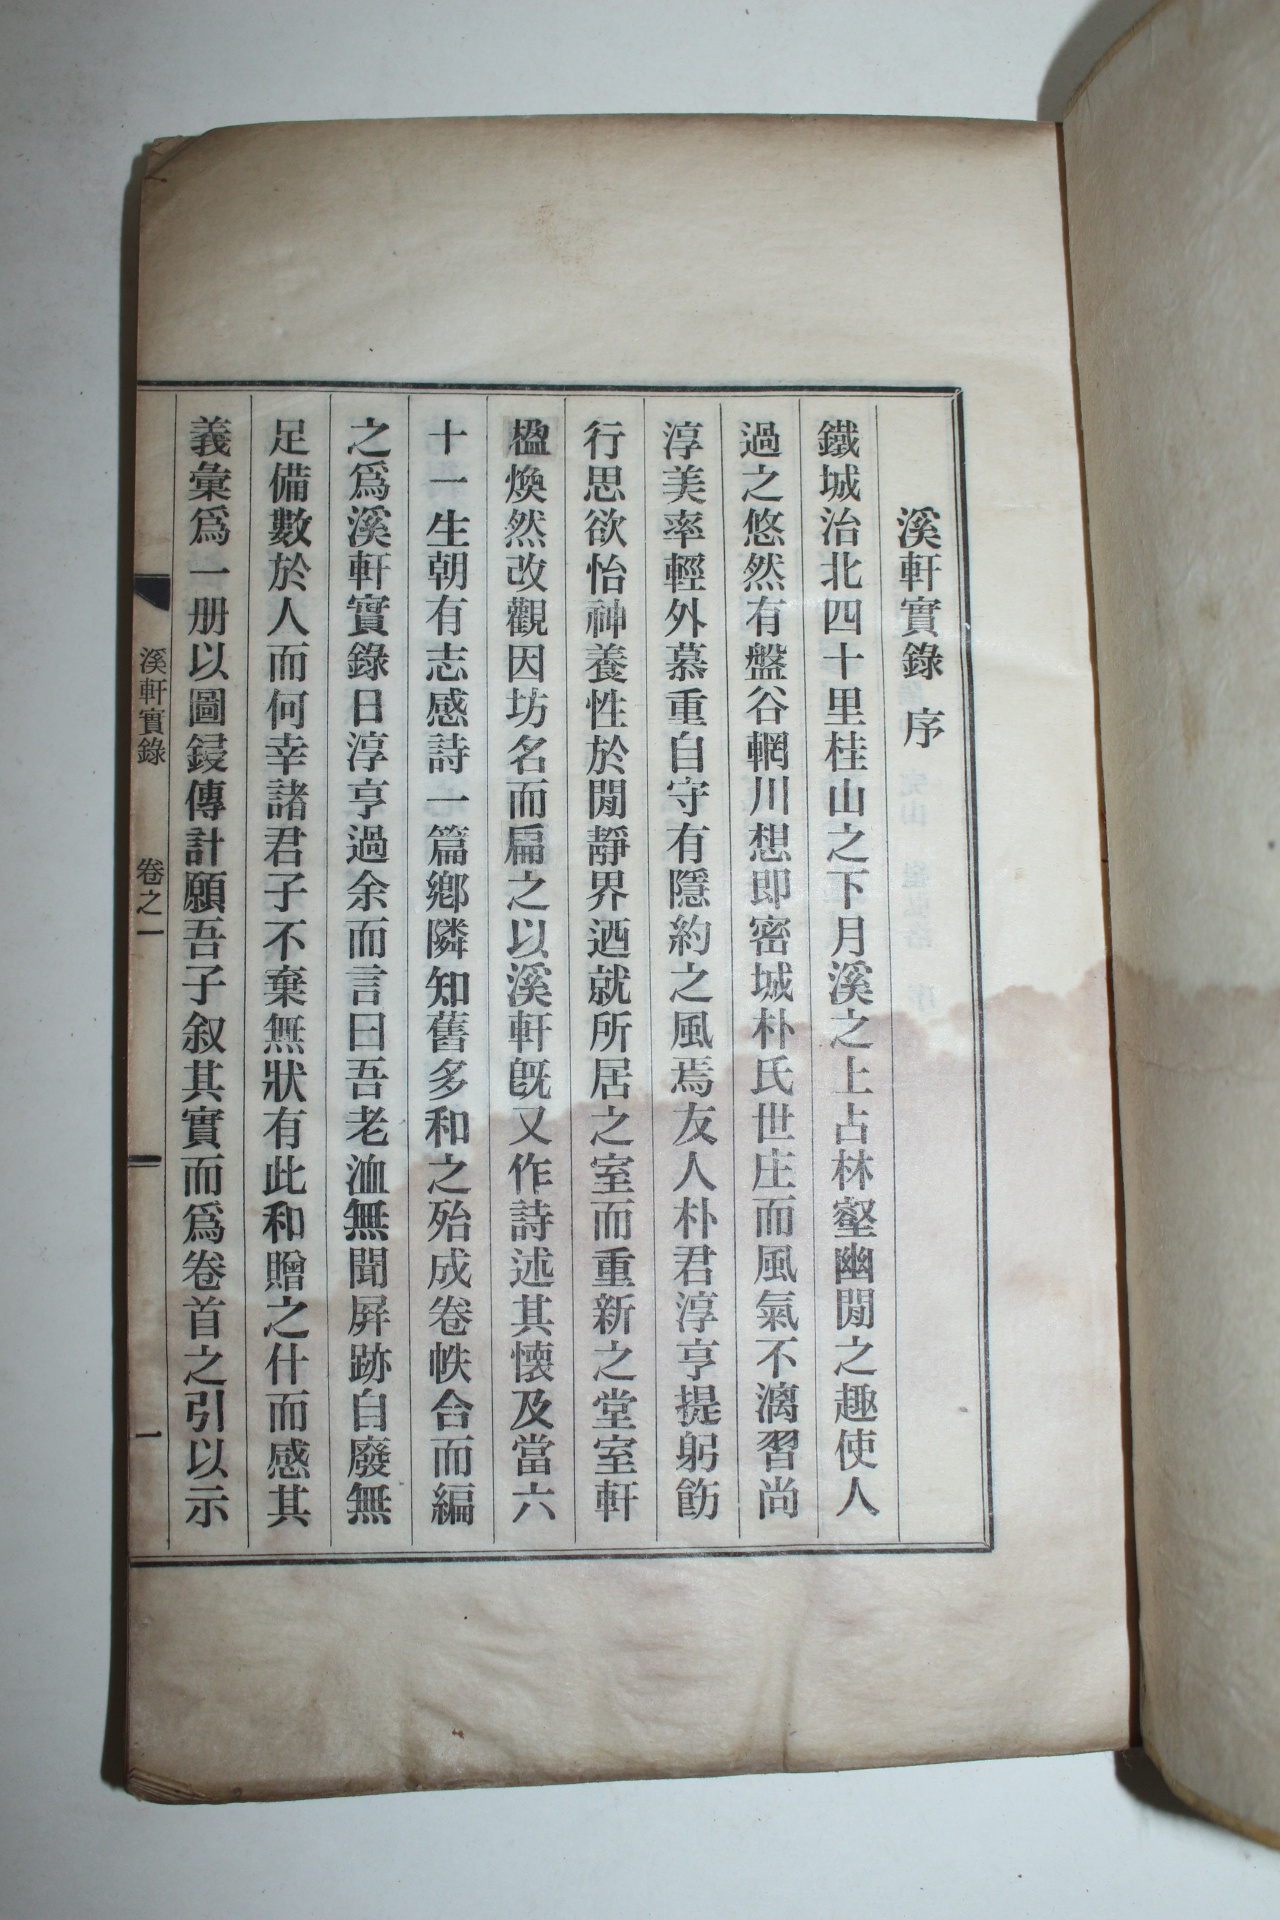 溪軒實錄 序
鐵城治北四十里桂山之下月溪之上占林壑幽閒之趣使人
過之悠然有盤谷輞川想即密城朴氏世庄而風氣不漓習尚
淳美率輕外慕重自守有隱約之風焉友人朴君淳亨提躬飭
行思欲怡神養性於閒靜界迺就所居之室而重新之堂室軒
楹煥然改觀因坊名而扁之以溪軒旣又作詩述其懷及當六
十一生朝有志感詩一篇鄕隣知舊多和之殆成卷帙合而編
之爲溪軒實錄日淳亨過余而言曰吾老洫無聞屛跡自廢無
足備數於人而何幸諸君子不棄無狀有此和贈之什而感其
義彙爲一册以圖鋟傳計願吾子叙其實而爲卷首之引以示
溪軒實錄 卷之一 一